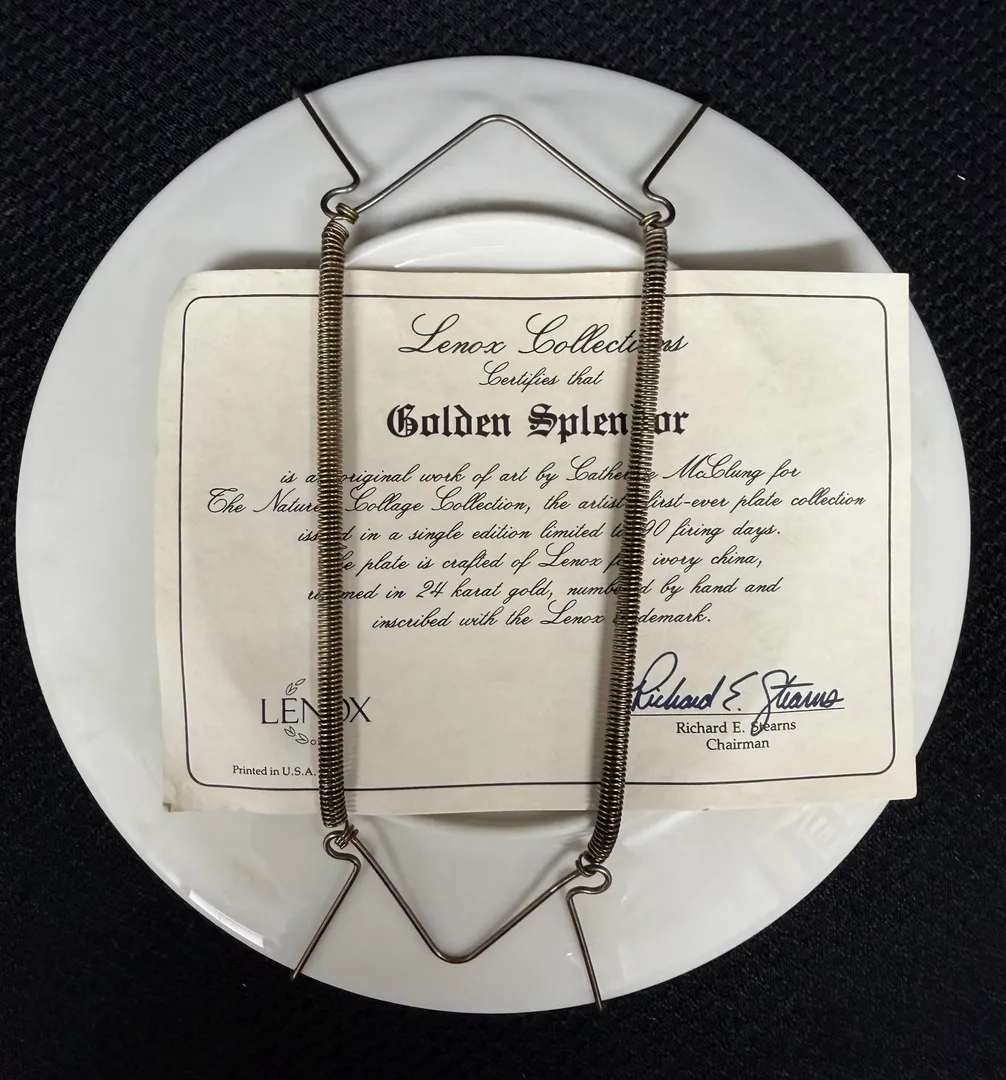 Lenox Collections
Certifies that
Golden Splendor
is an original work of art by Catherine McClung for
The Nature's Collage Collection, the artist's first-ever plate collection
issued in a single edition limited to 90 firing days.
The plate is crafted of Lenox fine ivory china,
rimmed in 24 karat gold, numbered by hand and
inscribed with the Lenox trademark.
LENOX
Richard E. Stearns
Richard E. Stearns
Chairman
Printed in U.S.A.